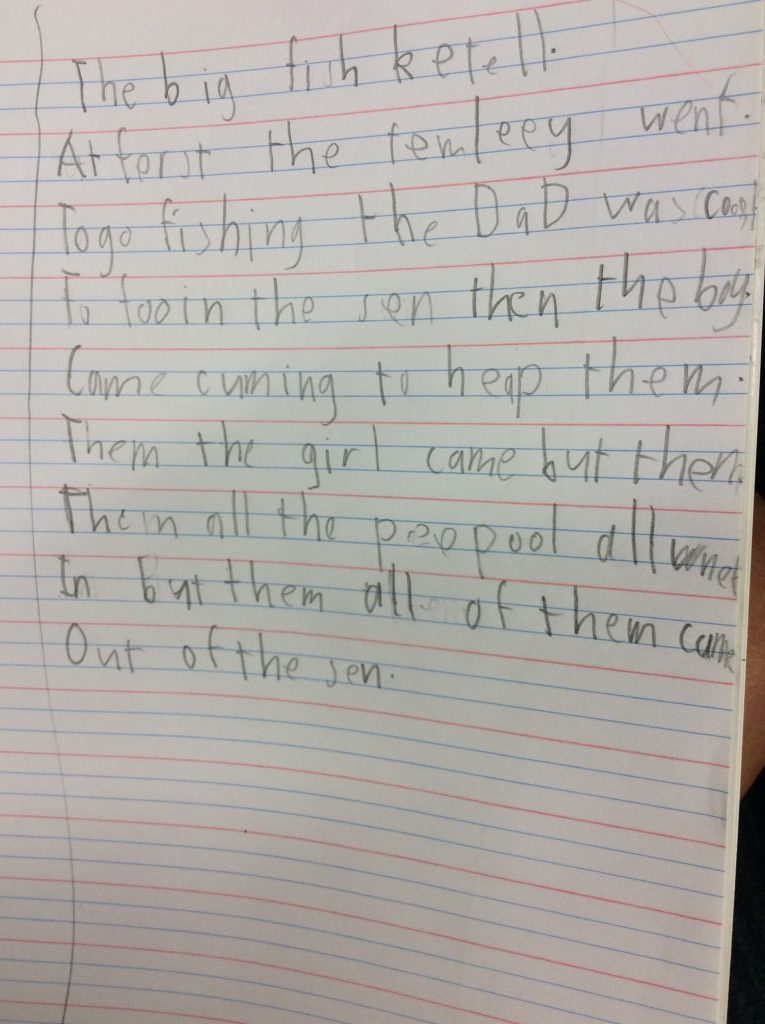 The big fish ketell.
At forst the femleey went.
To go fishing the DaD was
To foo in the sen then the boy.
Came cuming to heap them.
Them the girl came but then
Them all the peopool all wnet
In but them all of them came
Out of the sen.